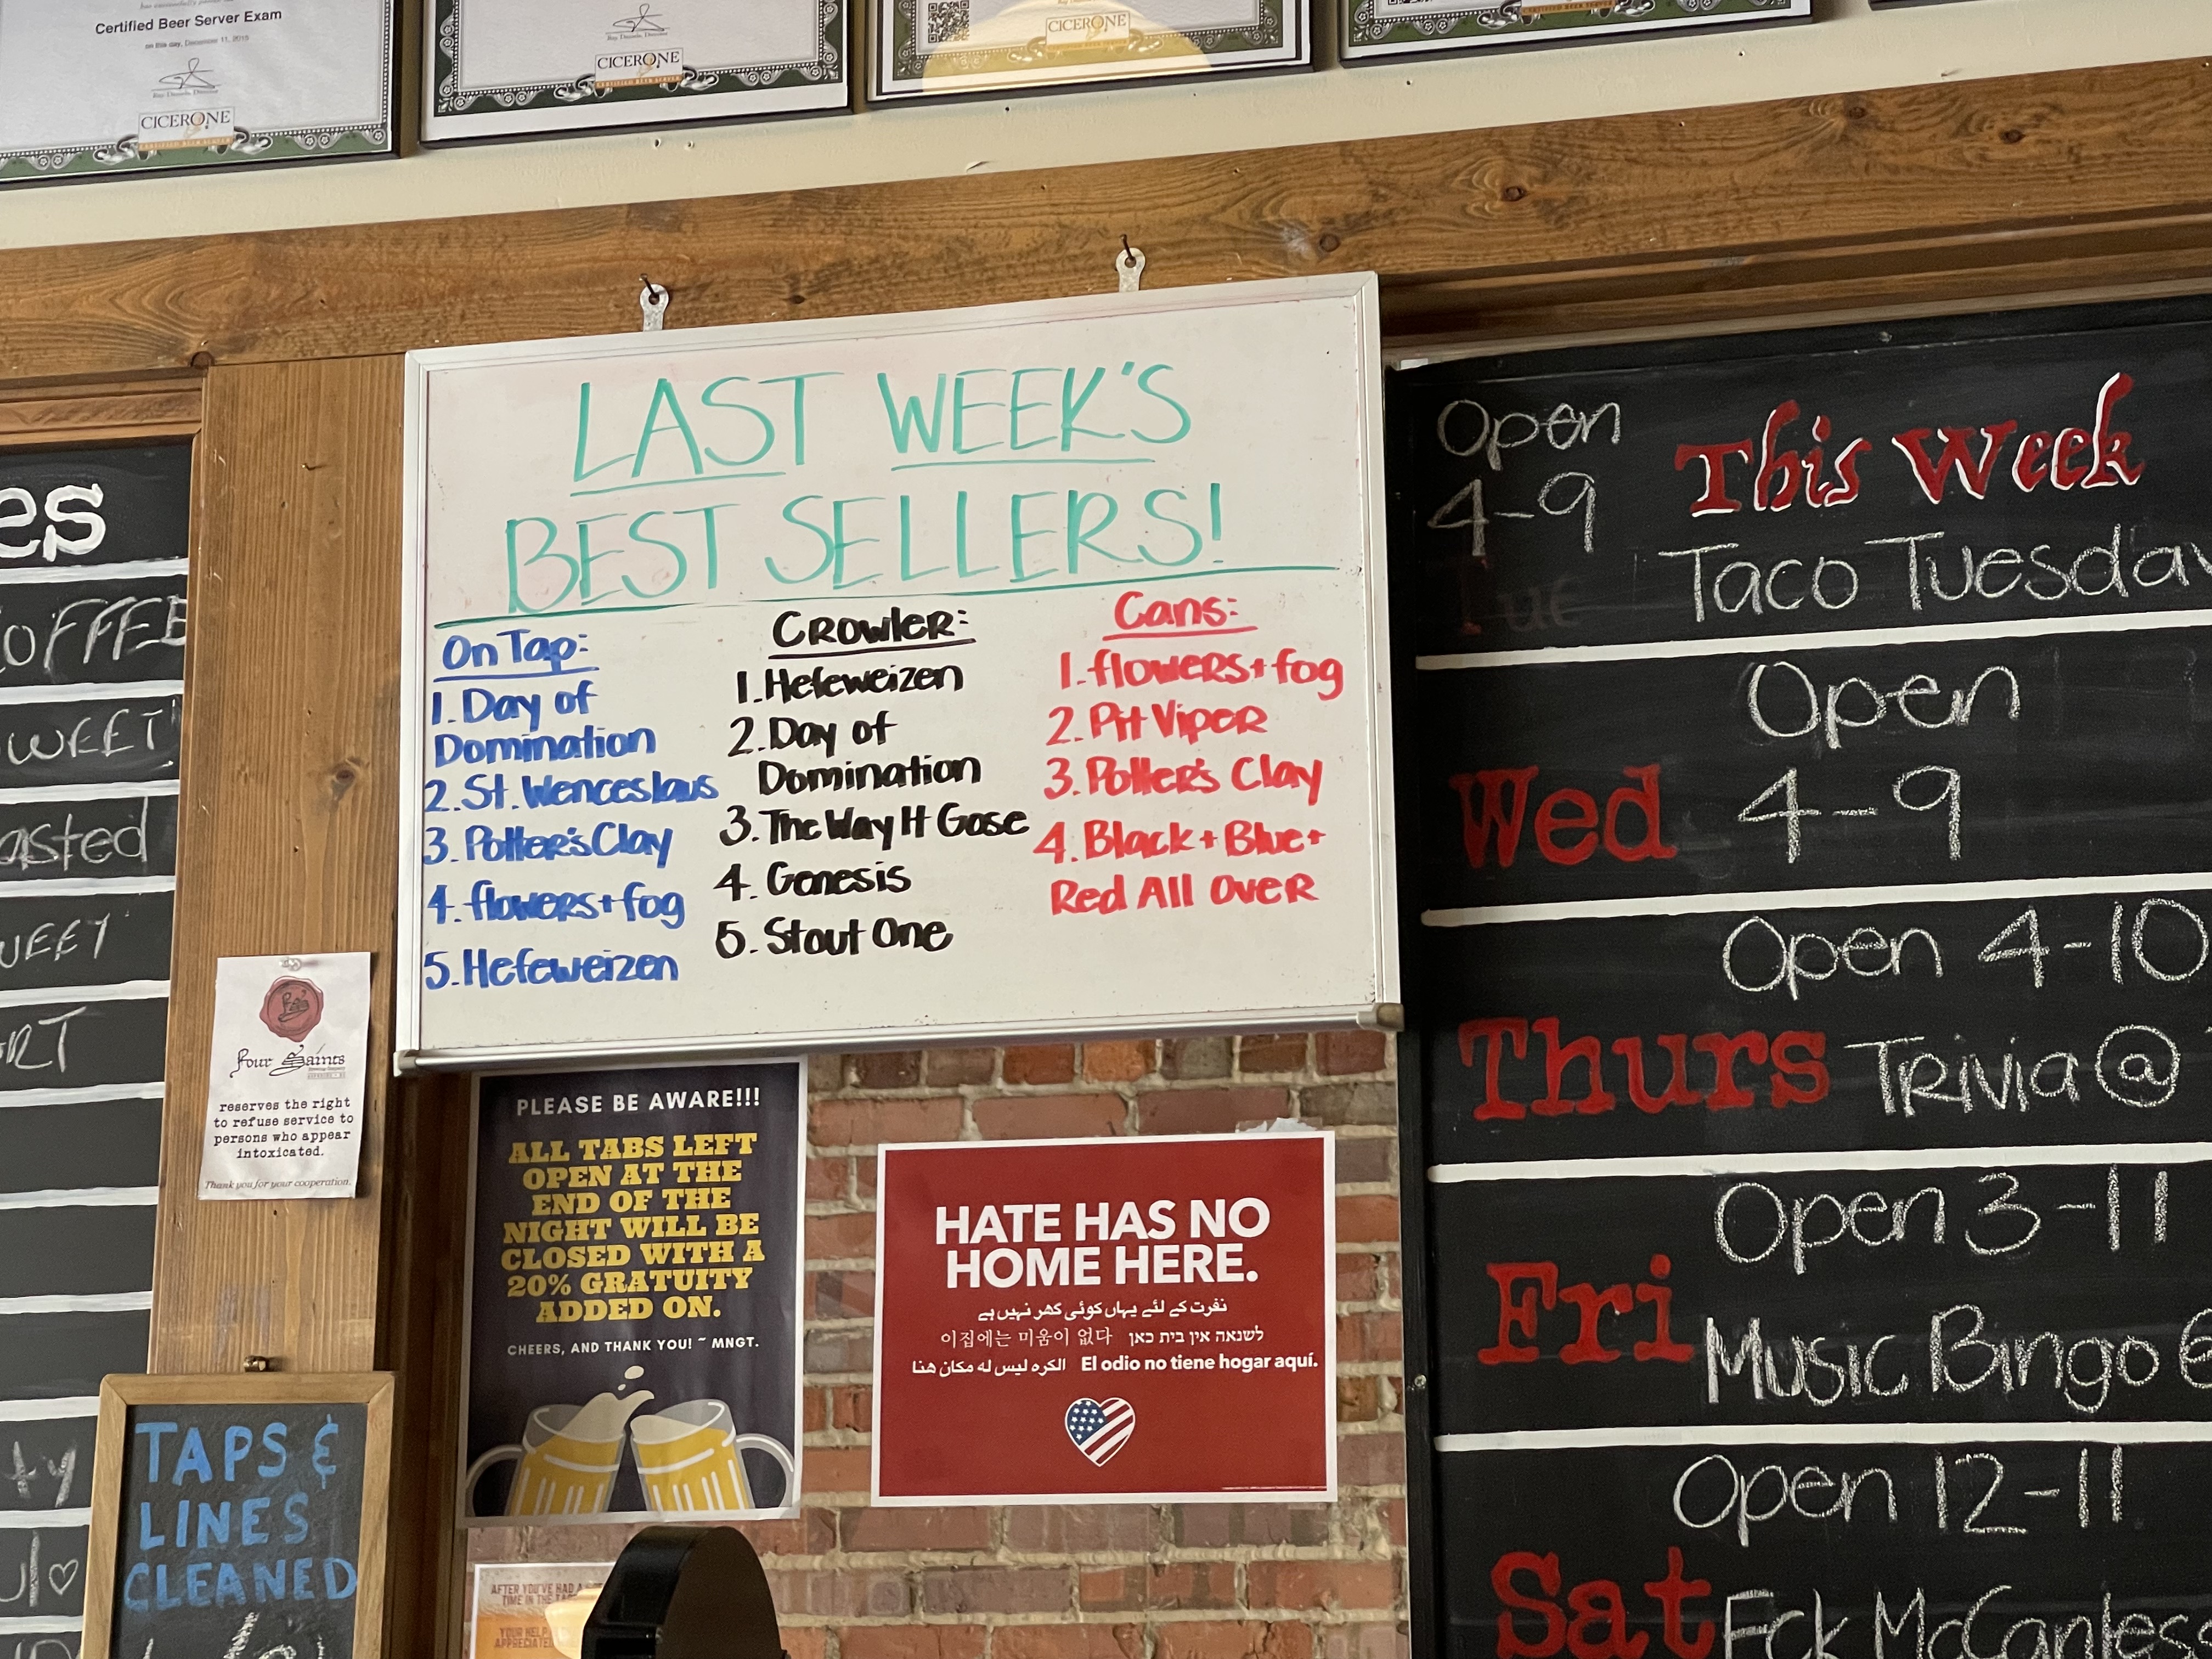 Certified Beer Server Exam
on this day, December 11, 2015
Ray Daniels, Director
CICERONE
CERTIFIED BEER SERVER
Ray Daniels, Director
CICERONE
CERTIFIED BEER SERVER
CICERONE
CERTIFIED BEER SERVER
LAST WEEK'S
BEST SELLERS!
On Tap:
1. Day of
Domination
2. St. Wenceslaus
3. Potter's Clay
4. flowers + fog
5. Hefeweizen
CROWLER:
1. Hefeweizen
2. Day of
Domination
3. The Way It Gose
4. Genesis
5. Stout One
Cans:
1. flowers + fog
2. Pit Viper
3. Potter's Clay
4. Black + Blue +
Red All Over
Open
4-9
This Week
Taco Tuesday
Tue
Open
Wed 4-9
Open 4-10
Thurs Trivia @
Open 3-11
Fri Music Bingo
Open 12-11
Sat Eck McCanless
es
COFFEE
SWEET
asted
WEET
ART
ty
Four Saints
Brewing Company
reserves the right
to refuse service to
persons who appear
intoxicated.
Thank you for your cooperation.
PLEASE BE AWARE!!!
ALL TABS LEFT
OPEN AT THE
END OF THE
NIGHT WILL BE
CLOSED WITH A
20% GRATUITY
ADDED ON.
CHEERS, AND THANK YOU! ~ MNGT.
HATE HAS NO
HOME HERE.
نفرت کے لئے یہاں کوئی گھر نہیں ہے
이집에는 미움이 없다 לשנאה אין בית כאן
الكره ليس له مكان هنا El odio no tiene hogar aquí.
TAPS &
LINES
CLEANED
AFTER YOU'VE HAD A
TIME IN THE
YOUR HELP
APPRECIATE